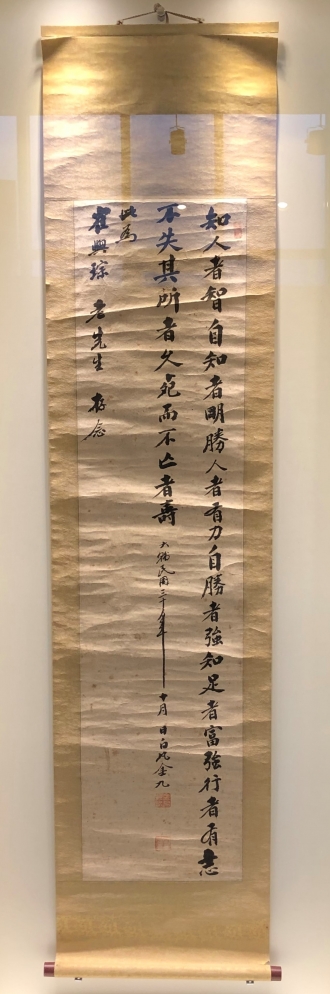 知人者智自知者眀勝人者有力自勝者強知足者富強行者有志
不失其所者久死而不亡者壽 大韓民國三十年 十月 日白凡金九
此為
崔興琮 老先生 存念